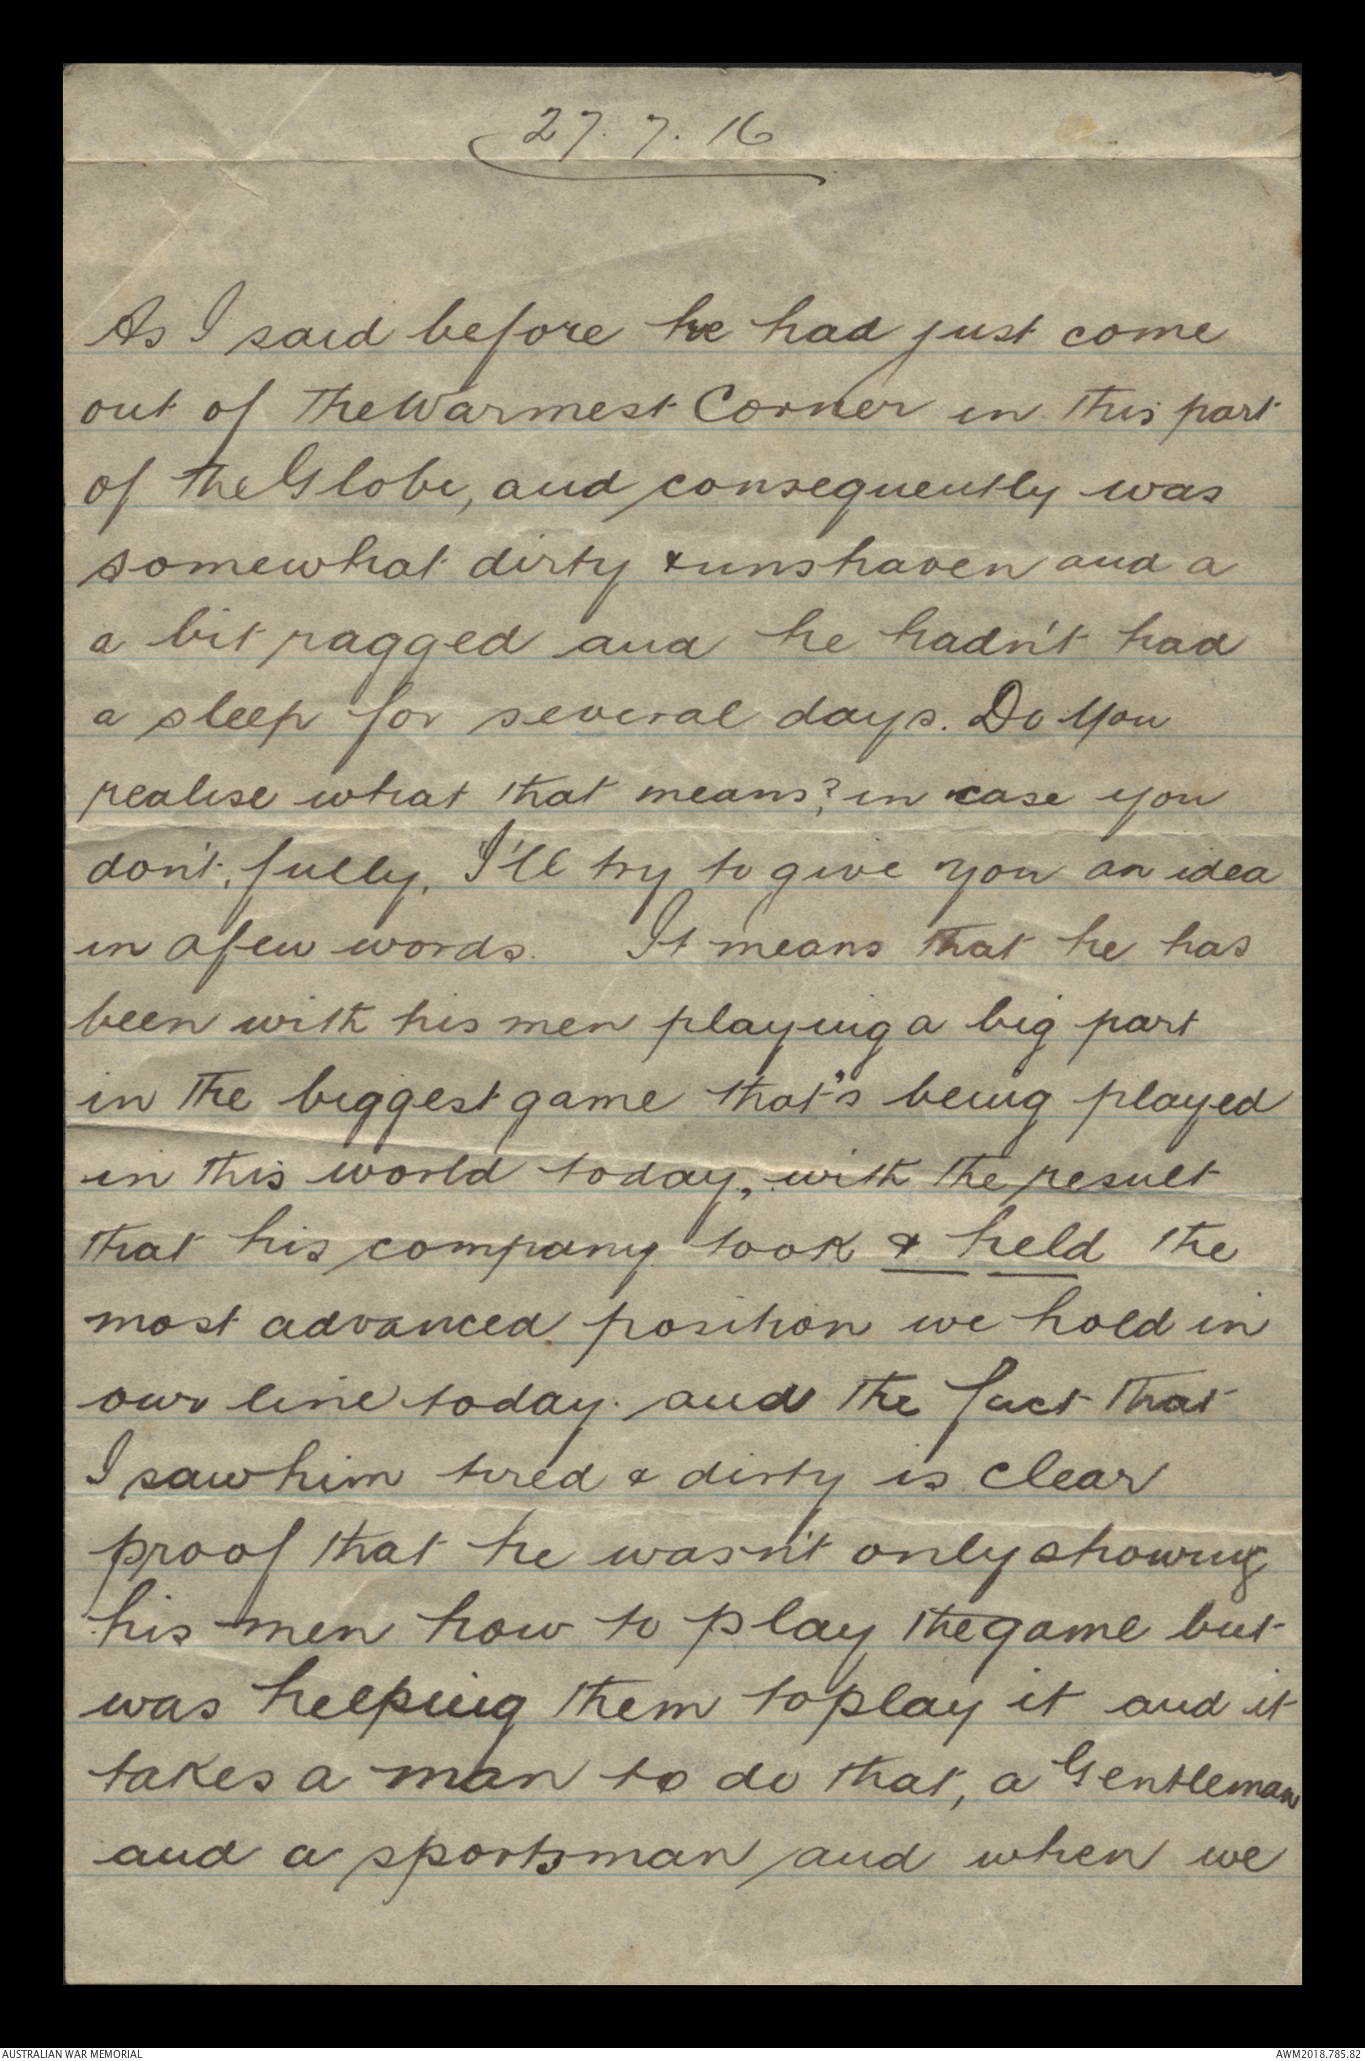 27. 7. 16
As I said before he had just come
out of the Warmest Corner in this part
of the Globe, and consequently was
somewhat dirty & unshaven and a
a bit ragged and he hadn't had
a sleep for several days. Do you
realise what that means? in case you
don't, fully, I'll try to give you an idea
in a few words. It means that he has
been with his men playing a big part
in the biggest game that's being played
in this world today, with the result
that his company took & held the
most advanced position we hold in
our line today. and the fact that
I saw him tired & dirty is clear
proof that he wasn't only showing
his men how to play the game but
was helping them to play it and it
takes a man to do that, a Gentleman
and a sportsman and when we
AUSTRALIAN WAR MEMORIAL
AWM2018.785.82